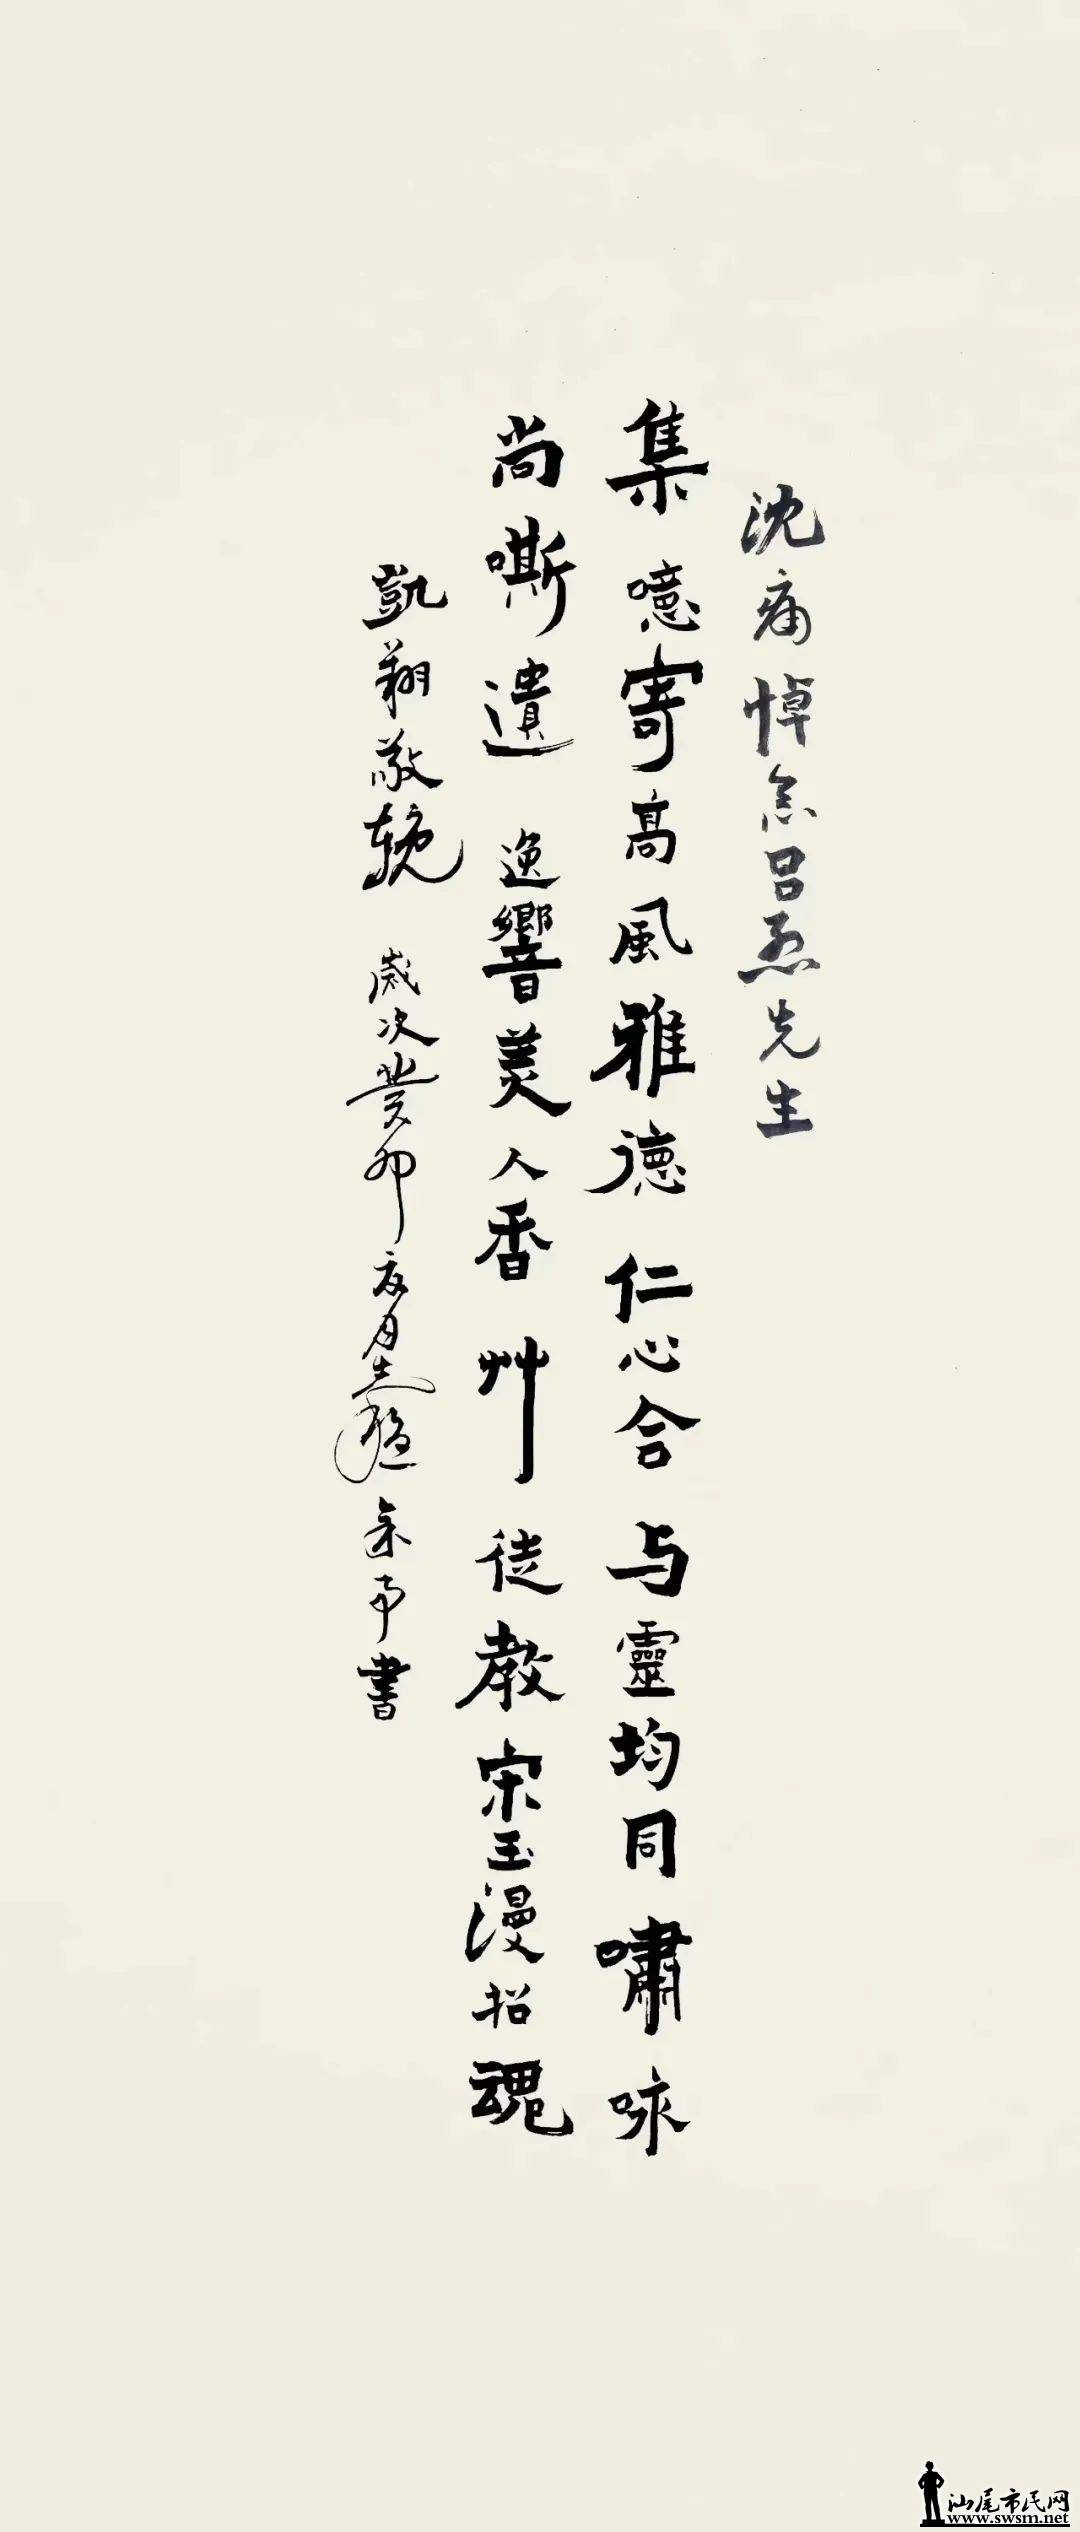 沈痛悼念吕烈先生
集噫寄高風雅德仁心合与靈均同嘯咏
尚嘶遺逸響美人香艸徒教宋玉漫招魂
凱翔敬輓 歲次癸卯 月 書
汕尾市民网
www.swsm.net